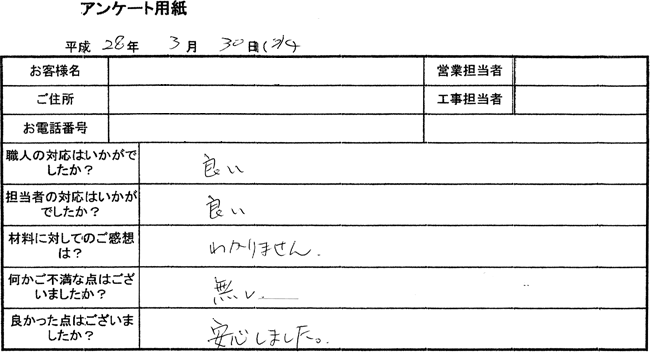 アンケート用紙
平成 28年 3月 30日(水)
お客様名
営業担当者
ご住所
工事担当者
お電話番号
職人の対応はいかがで
したか？
良い
担当者の対応はいかが
でしたか？
良い
材料に対してのご感想
は？
わかりません.
何かご不満な点はござ
いましたか？
無し
良かった点はございま
したか？
安心しました。